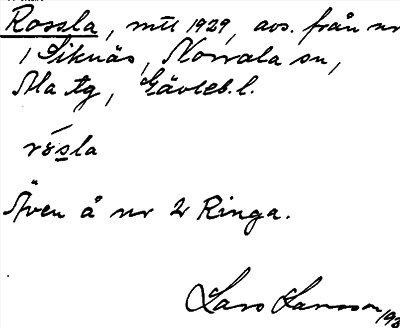 Rossla, mtl 1929, avs. från nr
1 Siknäs, Norrala sn,
Ala tg, Gävleb. l.
rósla
Även å nr 2 Ringa.
Lars Larsson